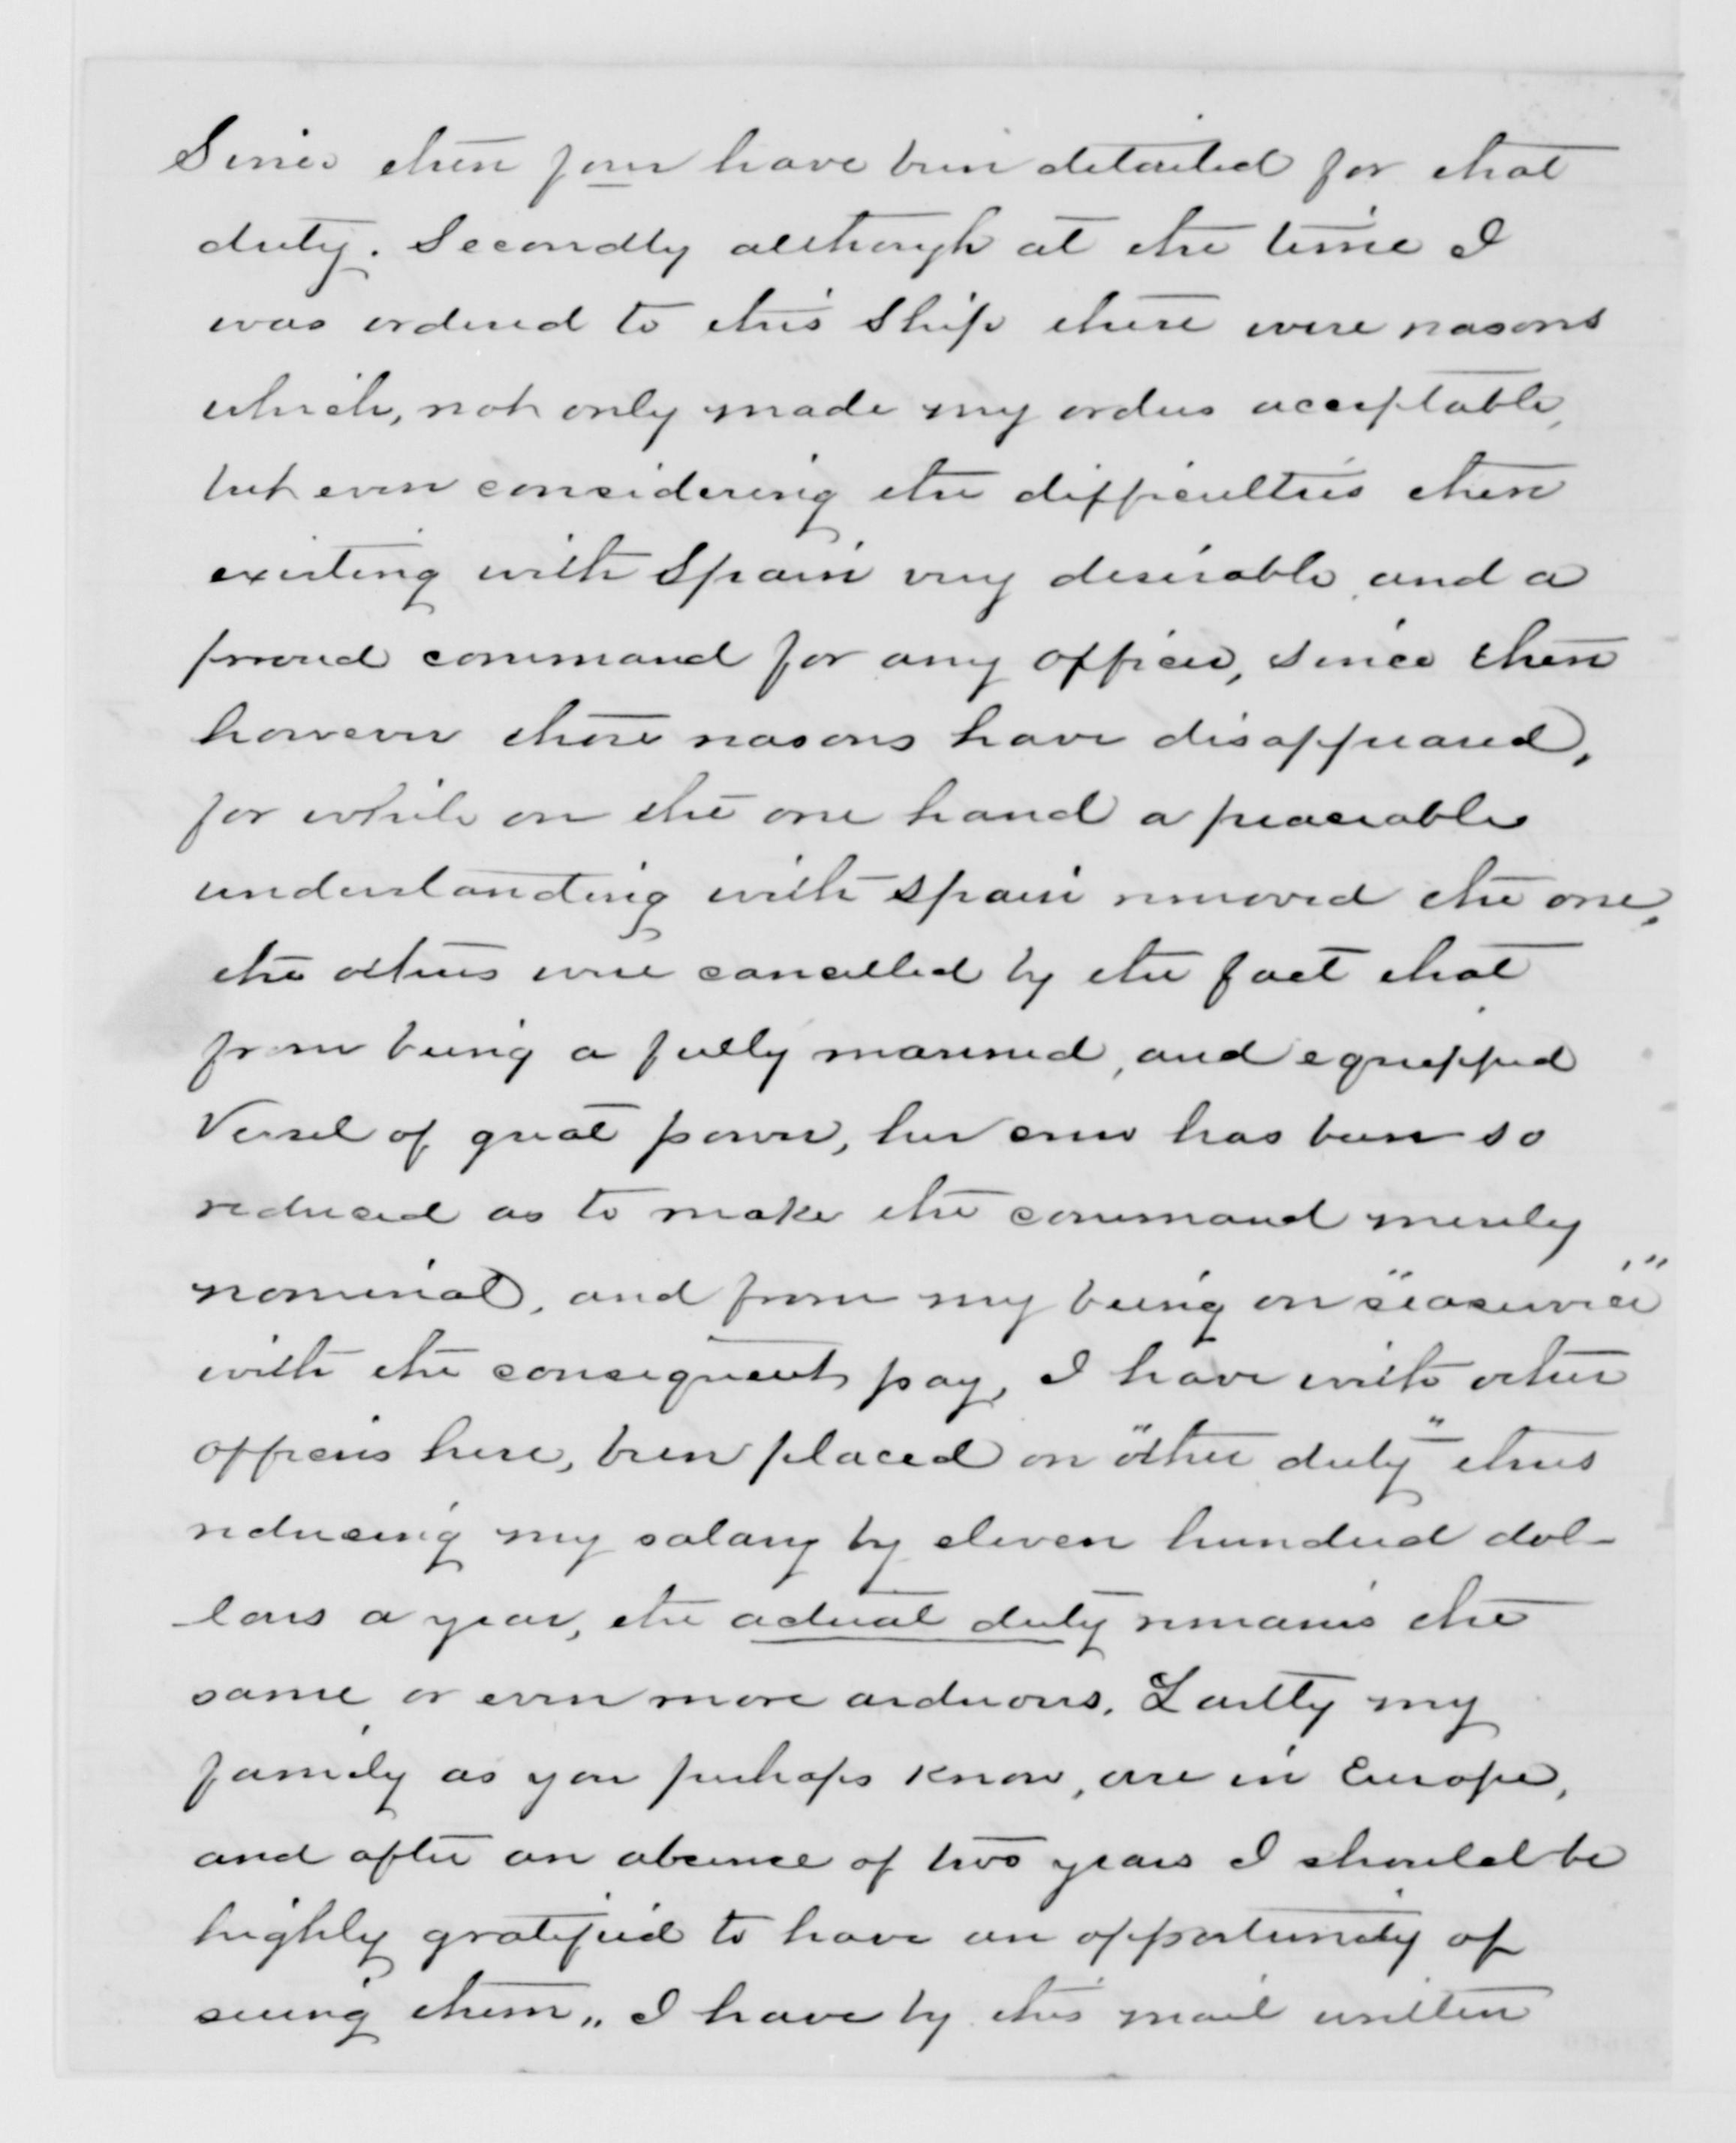 Since then four have been detailed for that
duty. Secondly although at the time I
was ordered to this Ship there were reasons
which, not only made my orders acceptable,
but even considering the difficulties then
existing with Spain very desirable, and a
proud command for any officer, since then
however these reasons have disappeared,
for while on the one hand a peaceable
understanding with Spain removed the one,
the others were cancelled by the fact that
from being a fully manned, and equipped
Vessel of great power, her crew has been so
reduced as to make the command merely
nominal, and from my being on "seaservice"
with the consequent pay, I have with other
officers here, been placed on "other duty" thus
reducing my salary by eleven hundred dol-
-lars a year, the actual duty remains the
same or even more arduous. Lastly my
family as you perhaps know, are in Europe,
and after an absence of two years I should be
highly gratified to have an opportunity of
seeing them„ I have by this mail written